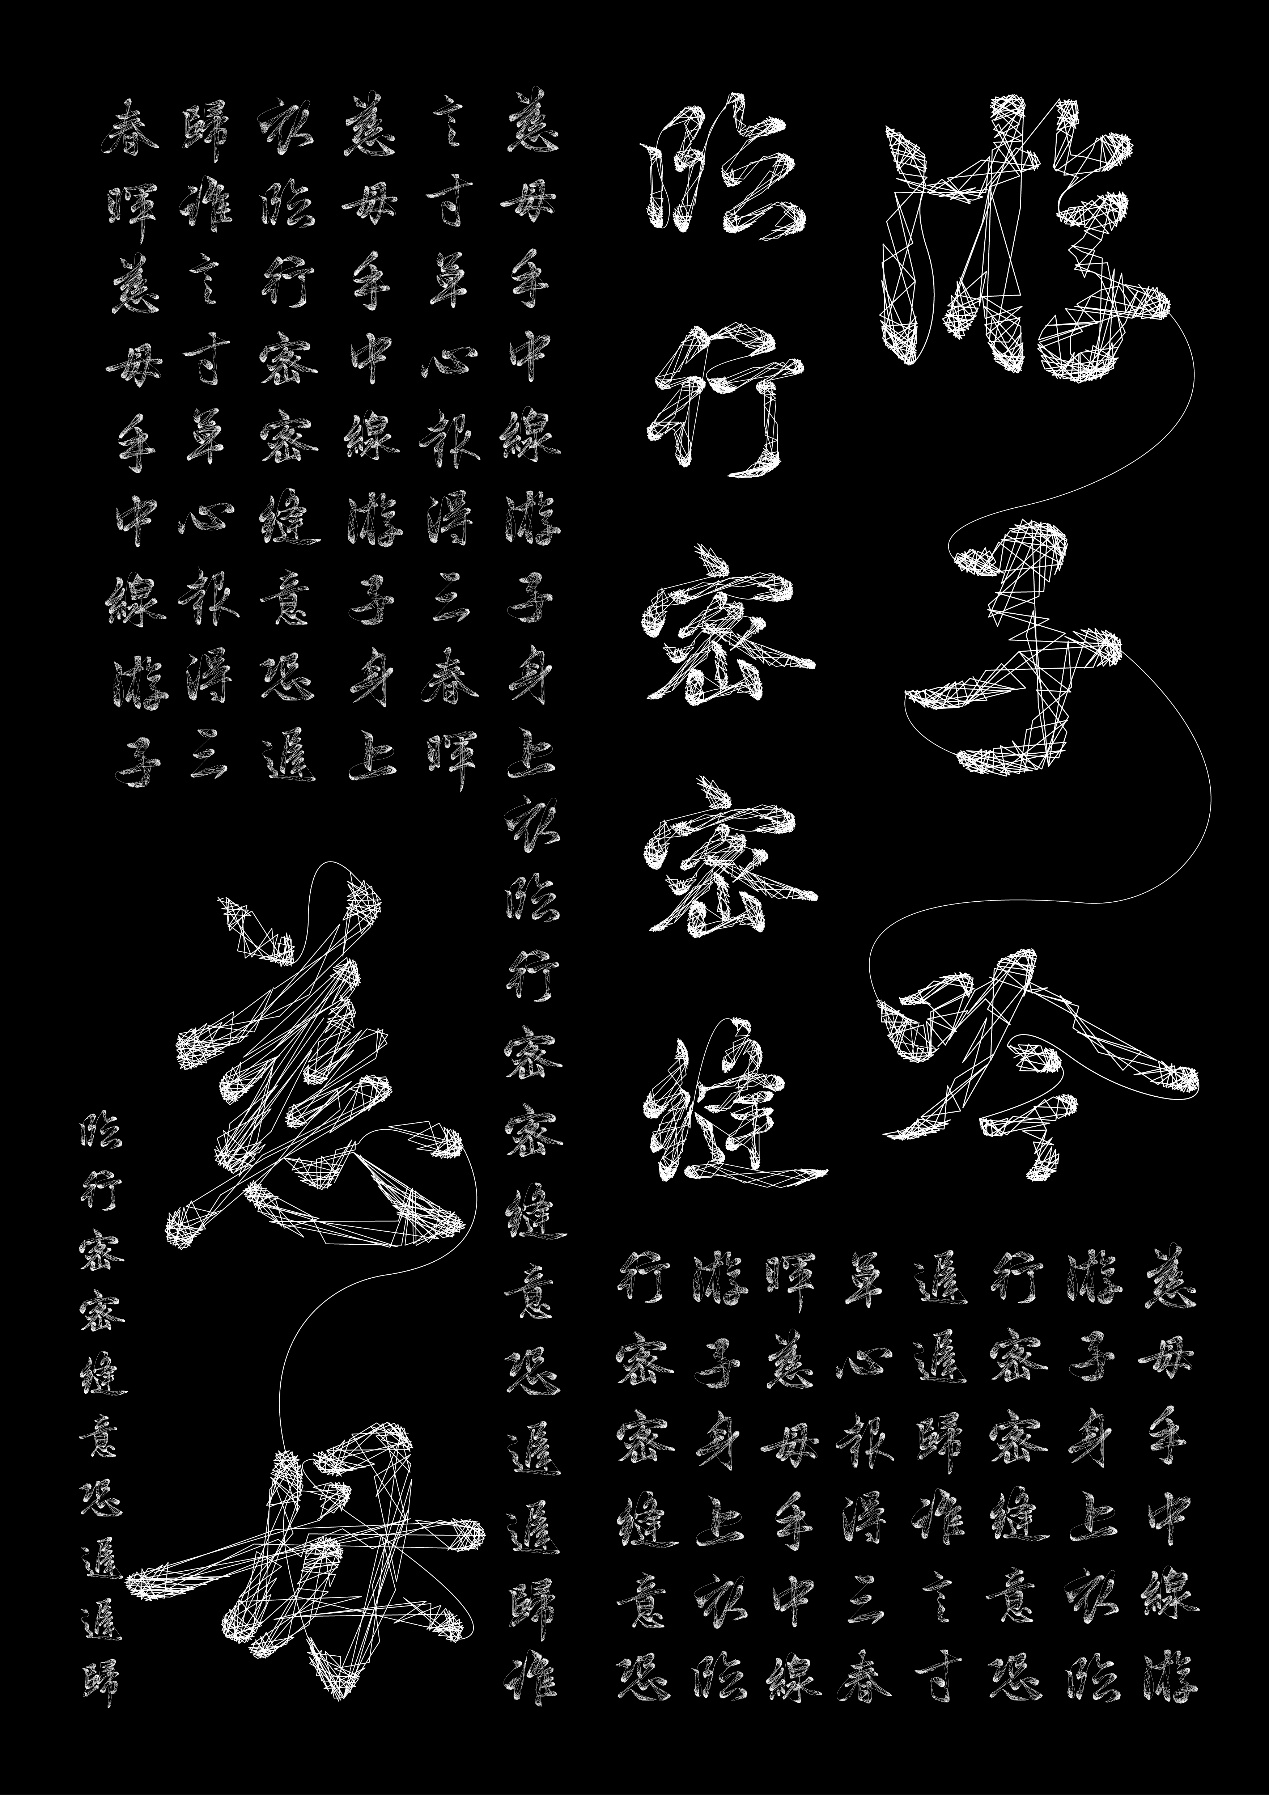 游子吟
臨行密密縫
慈母手中線游
游子身上衣臨
行密密縫意恐
遲遲歸誰言寸
草心報得三春
暉慈母手中線
游子身上衣臨
行密密縫意恐
慈母手中線游子身上衣臨行密密縫意恐遲遲歸誰
言寸草心報得三春暉
慈母手中線游子身上
衣臨行密密縫意恐遲
歸誰言寸草心報得三
春暉慈母手中線游子
慈母
臨行密密縫意恐遲遲歸